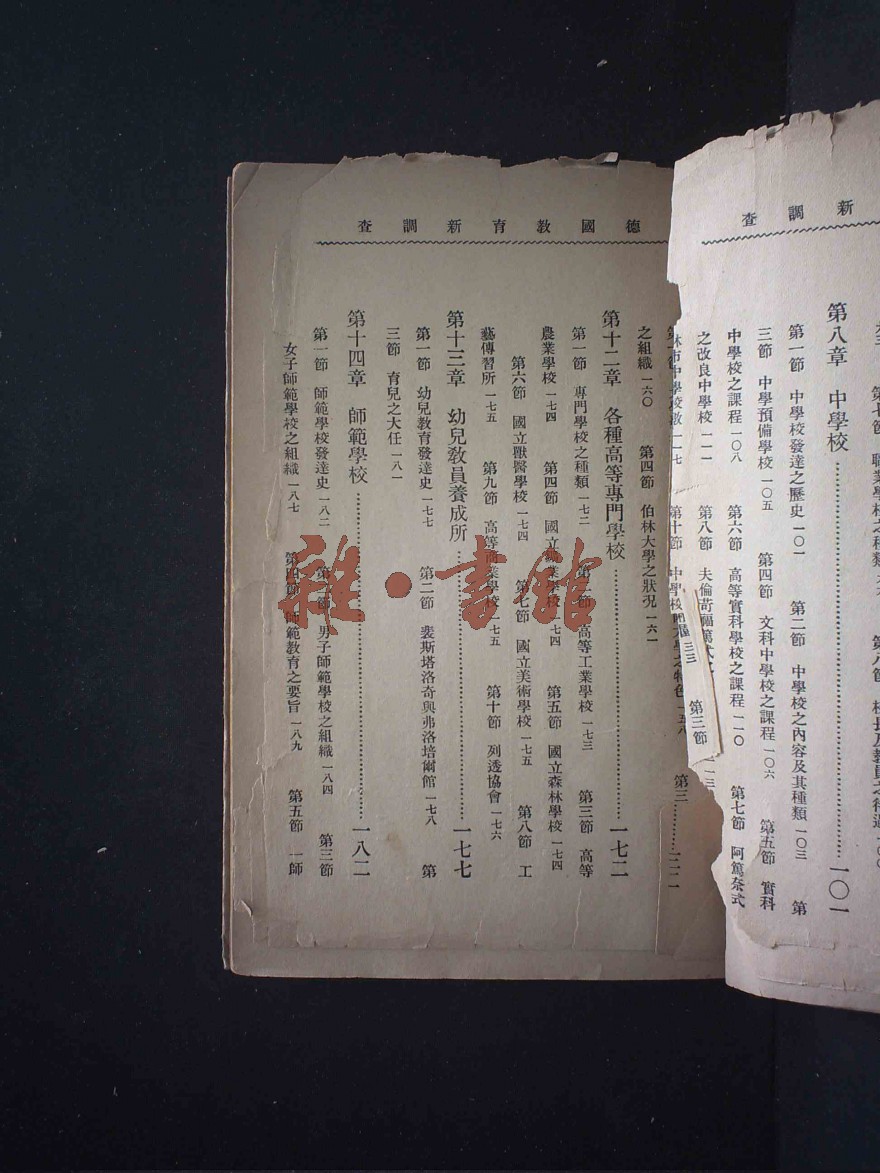 新調查
第八章 中學校 一〇一
第一節 中學校發達之歷史 一〇一 第二節 中學校之內容及其種類 一〇三 第
三節 中學預備學校 一〇五 第四節 文科中學校之課程 一〇六 第五節 實科
中學校之課程 一〇八 第六節 高等實科學校之課程 一一〇 第七節 阿篤奈式
之改良中學校 一一一 第八節
林市中學校 一一七 第十節
第三節
德國教育新調查
之組織 一六〇 第四節 伯林大學之狀況 一六一
第十二章 各種高等專門學校 一七二
第一節 專門學校之種類 一七二 高等工業學校 一七三 第三節 高等
農業學校 一七四 第四節 國立 一七四 第五節 國立森林學校 一七四
第六節 國立獸醫學校 一七四 第七節 國立美術學校 一七五 第八節 工
藝傳習所 一七五 第九節 高等商業學校 一七五 第十節 列透協會 一七六
第十三章 幼兒教員養成所 一七七
第一節 幼兒教育發達史 一七七 第二節 裴斯塔洛奇與弗洛培爾館 一七八 第
三節 育兒之大任 一八一
第十四章 師範學校 一八二
第一節 師範學校發達史 一八二 第二節 男子師範學校之組織 一八四 第三節
女子師範學校之組織 一八七 第四節 師範教育之要旨 一八九 第五節 一師
雜·書館